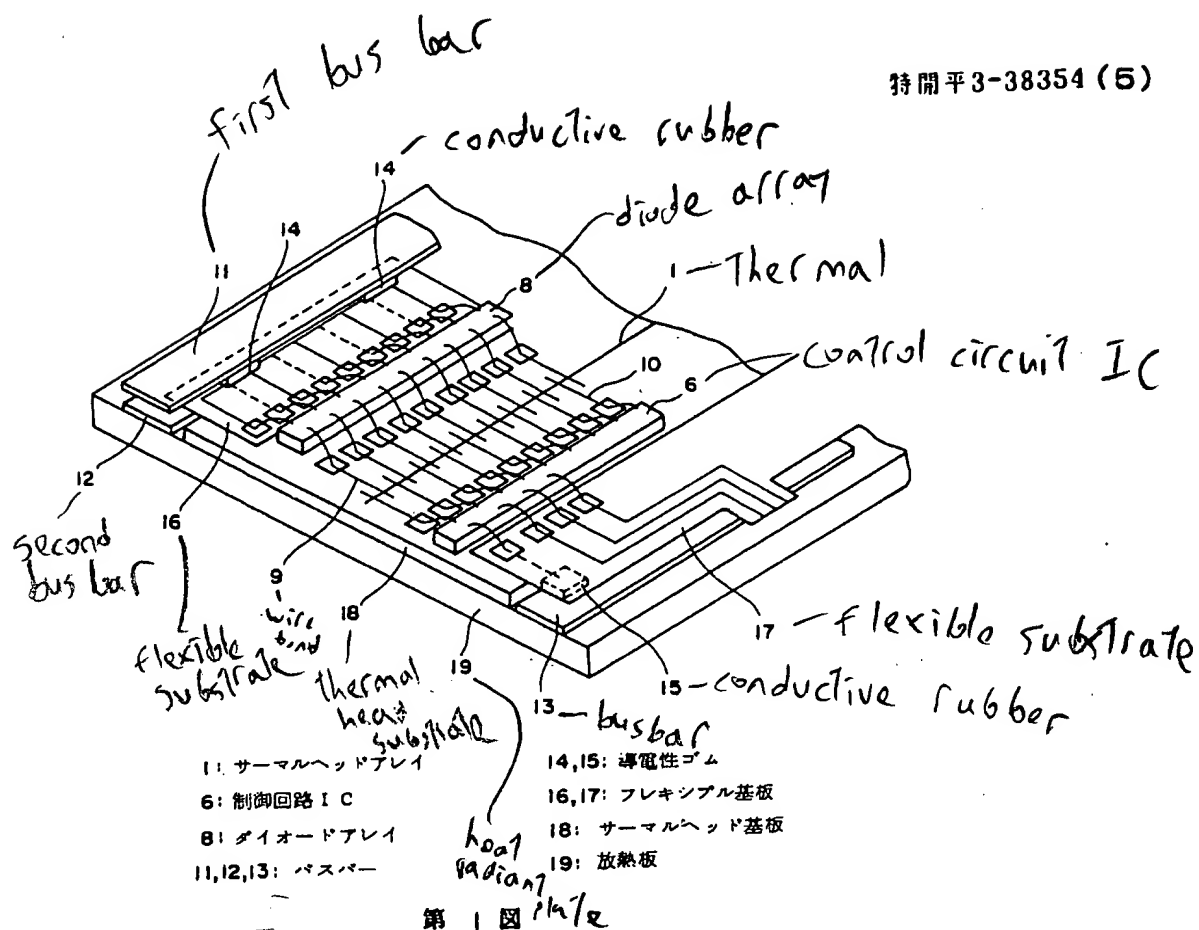 特開平3-38354(5)
first bus bar
14 - conductive rubber
diode array
14
11
8
1 - Thermal
control circuit IC
10
6
12
second
bus bar
16
flexible
substrate
9
wire
bond
18
thermal
head
substrate
19
17 - flexible substrate
15 - conductive rubber
13 - busbar
1: サーマルヘッドアレイ
6: 制御回路IC
8: ダイオードアレイ
11,12,13: バスバー
14,15: 導電性ゴム
16,17: フレキシブル基板
18: サーマルヘッド基板
19: 放熱板
heat
radiant
plate
第 1 図